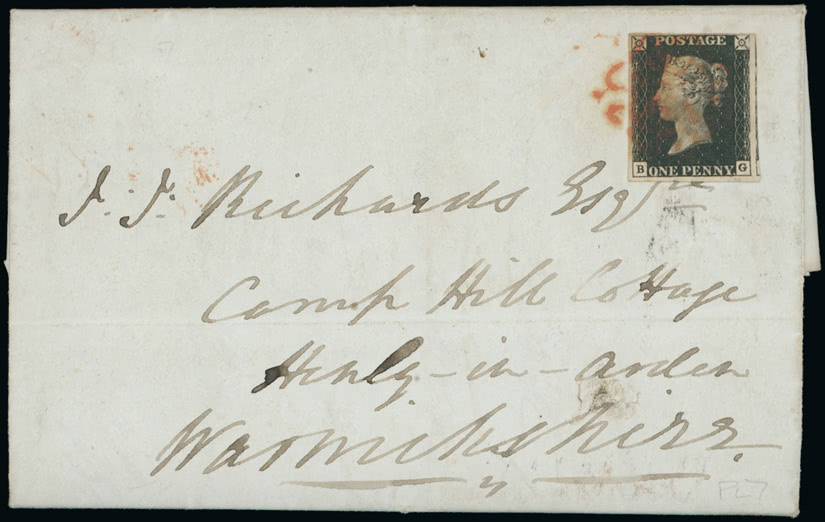 POSTAGE
B ONE PENNY G
J. J. Richards Esqre
Camp Hill Cottage
Henly-in-Arden
Warwickshire
PL7